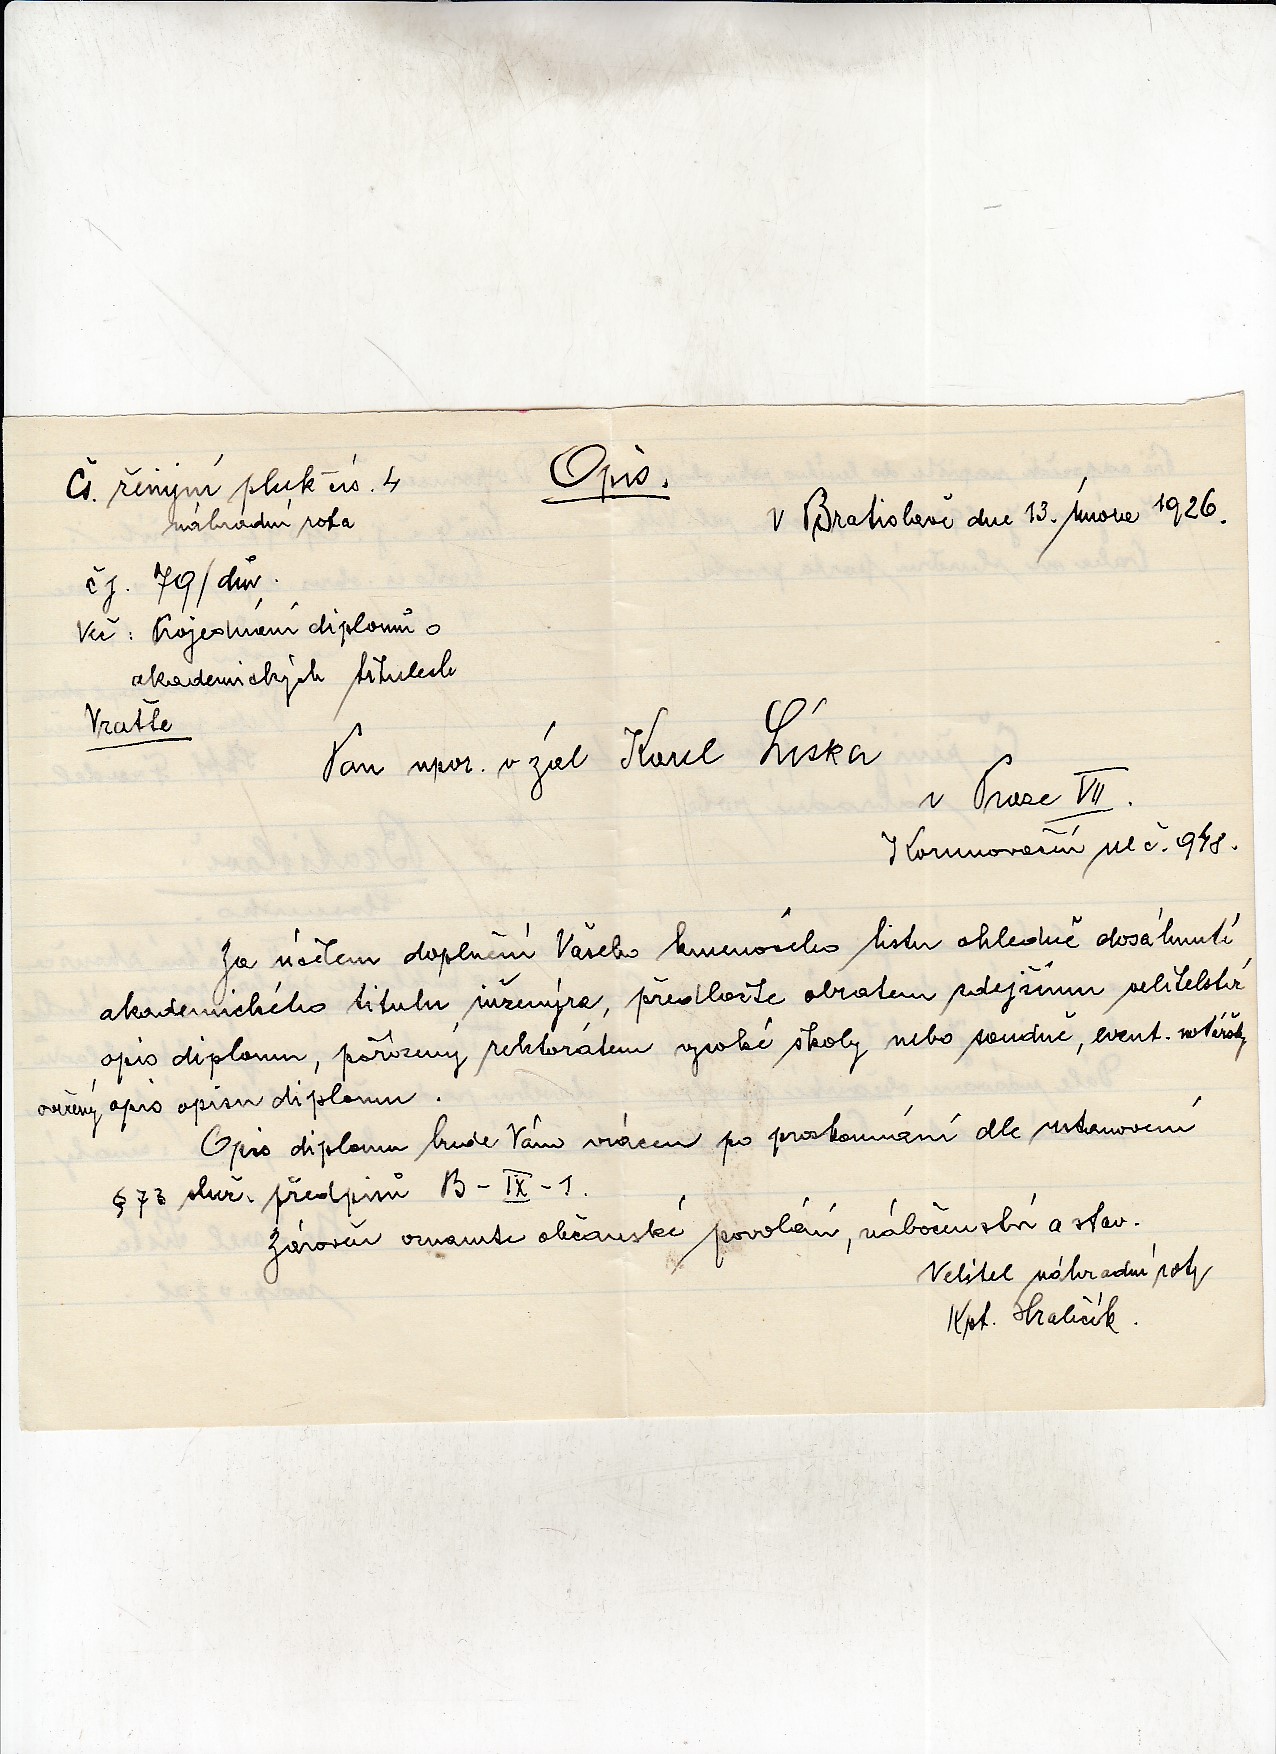 Opis.
Čs. ženijní pluk čís. 4
náhradní rota
V Bratislavě dne 13. února 1926.
čj. 79/dův.
Věc: Projednání diplomů o
akademických titulech
Vraťte
Pan npor. v zál Karel Líska
v Praze VII.
Korunovační ul č. 948.
Za účelem doplnění Vašeho kmenového listu ohledně dosáhnutí
akademického titulu inženýra, předložte obratem zdejšímu velitelství
opis diplomu, pořízený rektorátem vysoké školy nebo soudně, event. notářsky
ověřený opis opisu diplomu.
Opis diplomu bude Vám vrácen po prozkoumání dle ustanovení
§ 73 služ. předpisů B - IX - 1.
Zároveň oznamte občanské povolání, náboženství a stav.
Velitel náhradní roty
Kpt. Hraličík.